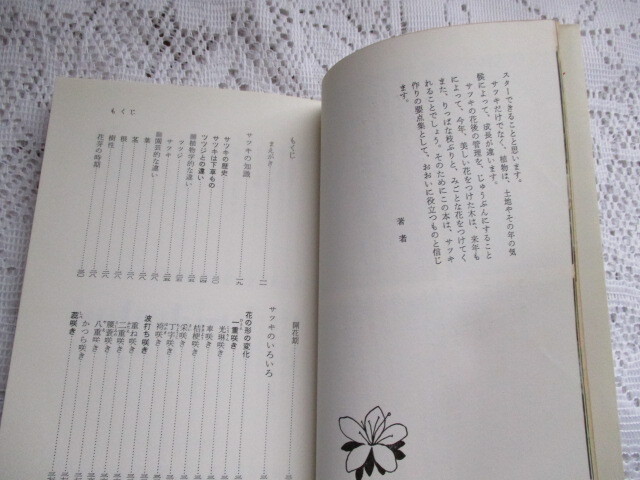 スターできることと思います。
サツキだけでなく、植物は、土地やその年の気
候によって、成長が違います。
サツキの花後の管理を、じゅうぶんにすること
によって、今年、美しい花をつけた木は、来年も
また、りっぱな枝ぶりと、みごとな花をつけてく
れることでしょう。そのためにこの本は、サツキ
作りの要点集として、おおいに役立つものと信じ
ます。
著者
もくじ
まえがき
サツキの知識
サツキの歴史
サツキは下草もの
ツツジとの違い
植物学的な違い
ツツジ
サツキ
園芸的な違い
葉
茎
根
樹性
花芽の時期
もくじ
開花期
サツキのいろいろ
花の形の変化
一重咲き
光琳咲き
車咲き
桔梗咲き
采咲き
丁字咲き
絞咲き
波打ち咲き
重ね咲き
二重咲き
腰蓑咲き
八重咲き
かつら咲き
蕊咲き